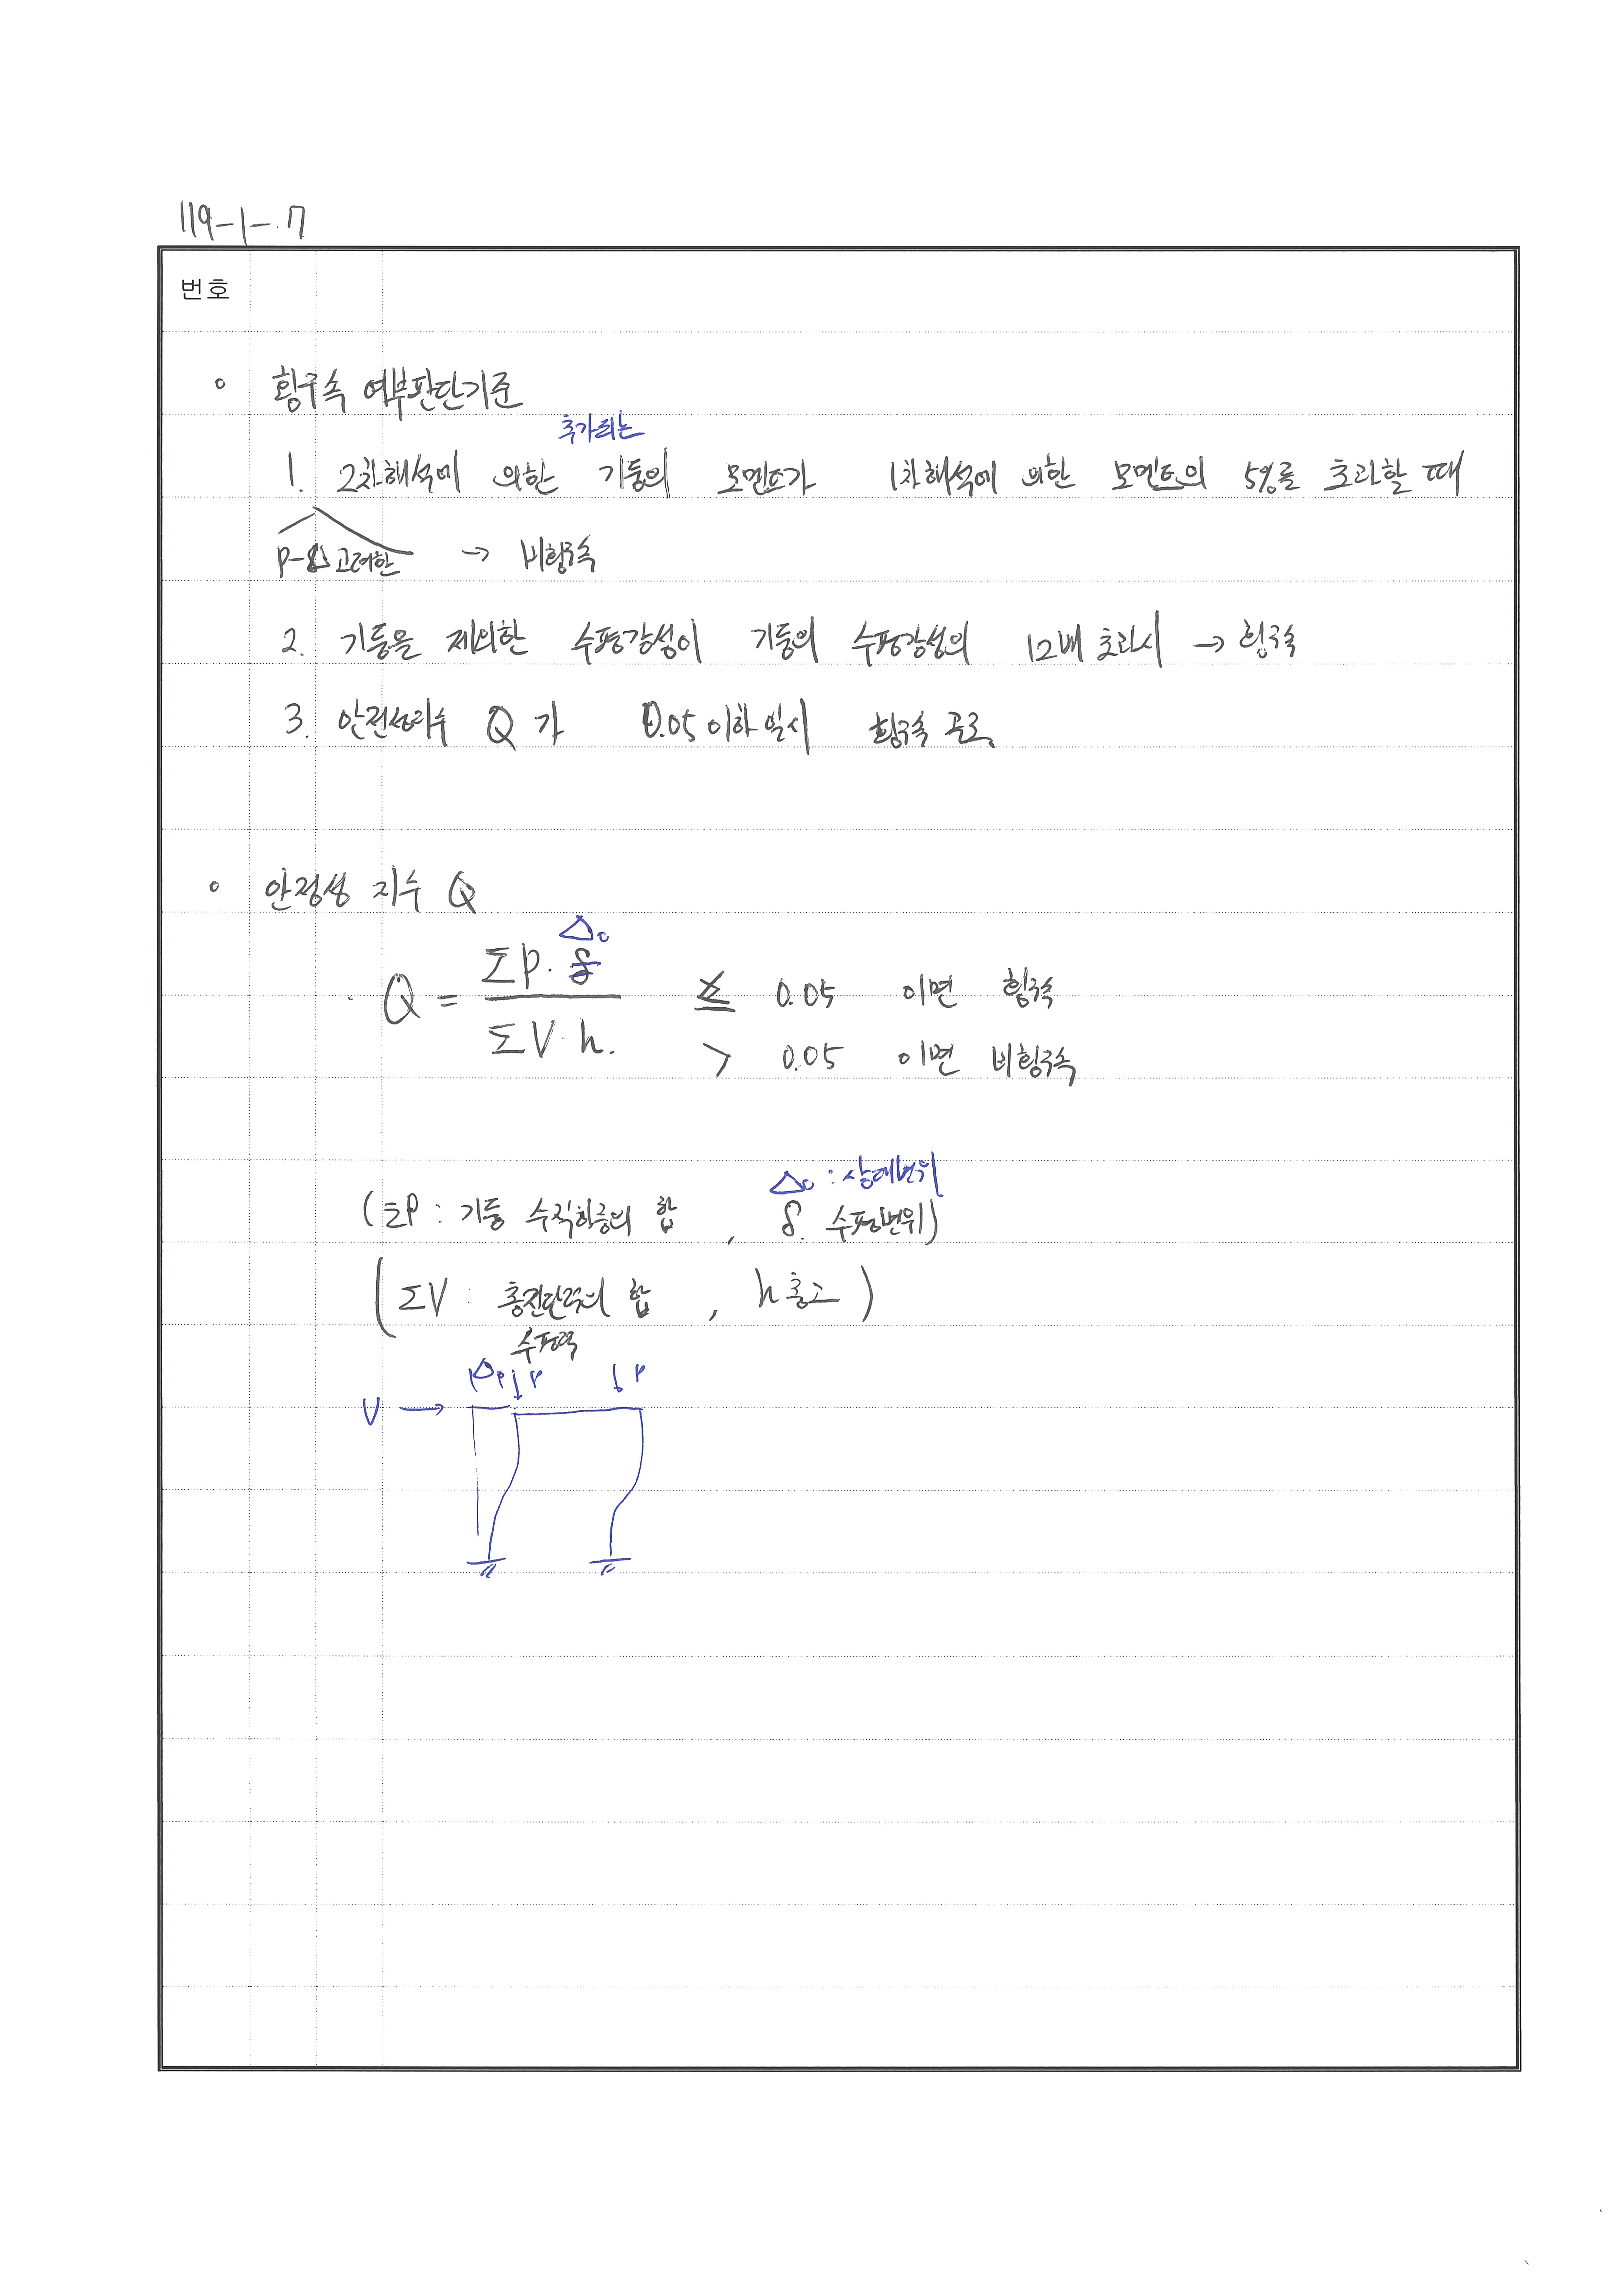 119-1-7
번호
횡구속 여부판단기준
추가되는
1. 2차해석에 의한 기둥의 모멘트가 1차해석에 의한 모멘트의 5%를 초과할 때
P-Δ 고려한 → 비횡구속
2. 기둥을 제외한 수평강성이 기둥의 수평강성의 12배 초과시 → 횡구속
3. 안전성지수 Q가 0.05이하 일시 횡구속 골조
안정성 지수 Q
Δo
Q = ΣP·δ / ΣV·h. ≤ 0.05 이면 횡구속
> 0.05 이면 비횡구속
Δo : 상대변위
(ΣP : 기둥 수직하중의 합, δ. 수평변위)
(ΣV : 층전단력의 합, h 층고)
수평력
Δ P P
V →